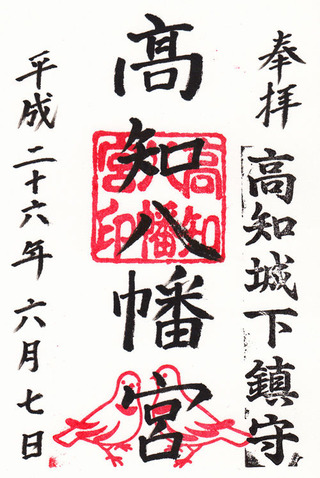 奉拝
高知城下鎮守
高知八幡宮
高知八幡宮印
平成二十六年六月七日